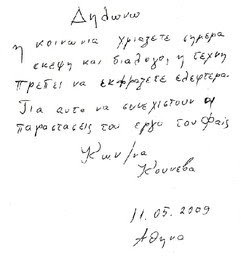 Δηλωνω
η κοινωνια χριαζετε σημερα
σκεψη και διαλογο, η τεχνη
πρεπει να εκφραζετε ελεφτερα.
Για αυτο να συνεχιστουν οι
παραστασεις του εργο του Φαις
Κων/να
Κουνεβα
11.05.2009
Αθηνα